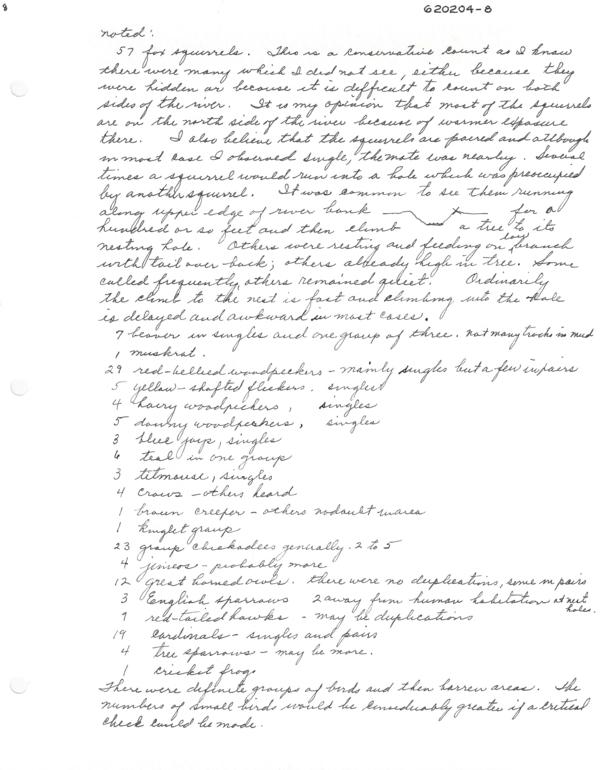 8
620204-8
noted:
57 fox squirrels. This is a conservative count as I know
there were many which I did not see, either because they
were hidden or because it is difficult to count on both
sides of the river. It is my opinion that most of the squirrels
are on the north side of the river because of warmer exposure
there. I also believe that the squirrels are paired and although
in most case I observed single, the mate was nearby. Several
times a squirrel would run into a hole which was preoccupied
by another squirrel. It was common to see them running
along upper edge of river bank for a
hundred or so feet and then climb a tree to its
nesting hole. Others were resting and feeding on low branch
with tail over back; others already high in tree. Some
called frequently, others remained quiet. Ordinarily
the climb to the nest is fast and climbing into the hole
is delayed and awkward in most cases.
7 beaver in singles and one group of three. not many tracks in mud
1 muskrat.
29 red-bellied woodpeckers - mainly singles but a few in pairs
5 yellow-shafted flickers. singles
4 hairy woodpeckers, singles
5 downy woodpeckers, singles
3 blue jays, singles
6 teal in one group
3 titmouse, singles
4 crows - others heard
1 brown creeper - others no doubt in area
1 kinglet group
23 group chickadees generally 2 to 5
4 juncos - probably more
12 great horned owls. there were no duplications, some in pairs
3 English sparrows 2 away from human habitation at nest holes.
9 red-tailed hawks - may be duplications
19 cardinals - singles and pairs
4 tree sparrows - may be more.
1 cricket frog
There were definite groups of birds and then barren areas. The
numbers of small birds would be considerably greater if a critical
check could be made.